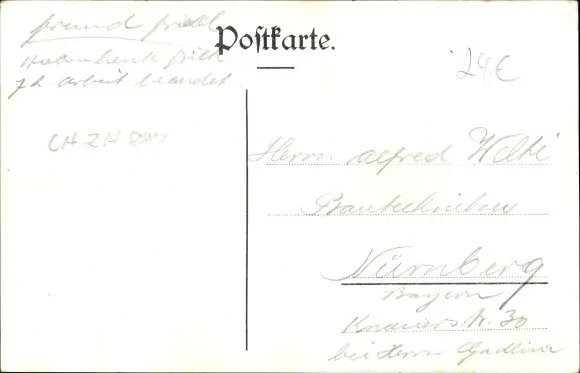 Postkarte.
freund
24 €
Arbeit beendet
CH ZH
Herrn Alfred Welti
Bautechniker
Nürnberg
Bayern
Knauerstr. 30
bei Herrn